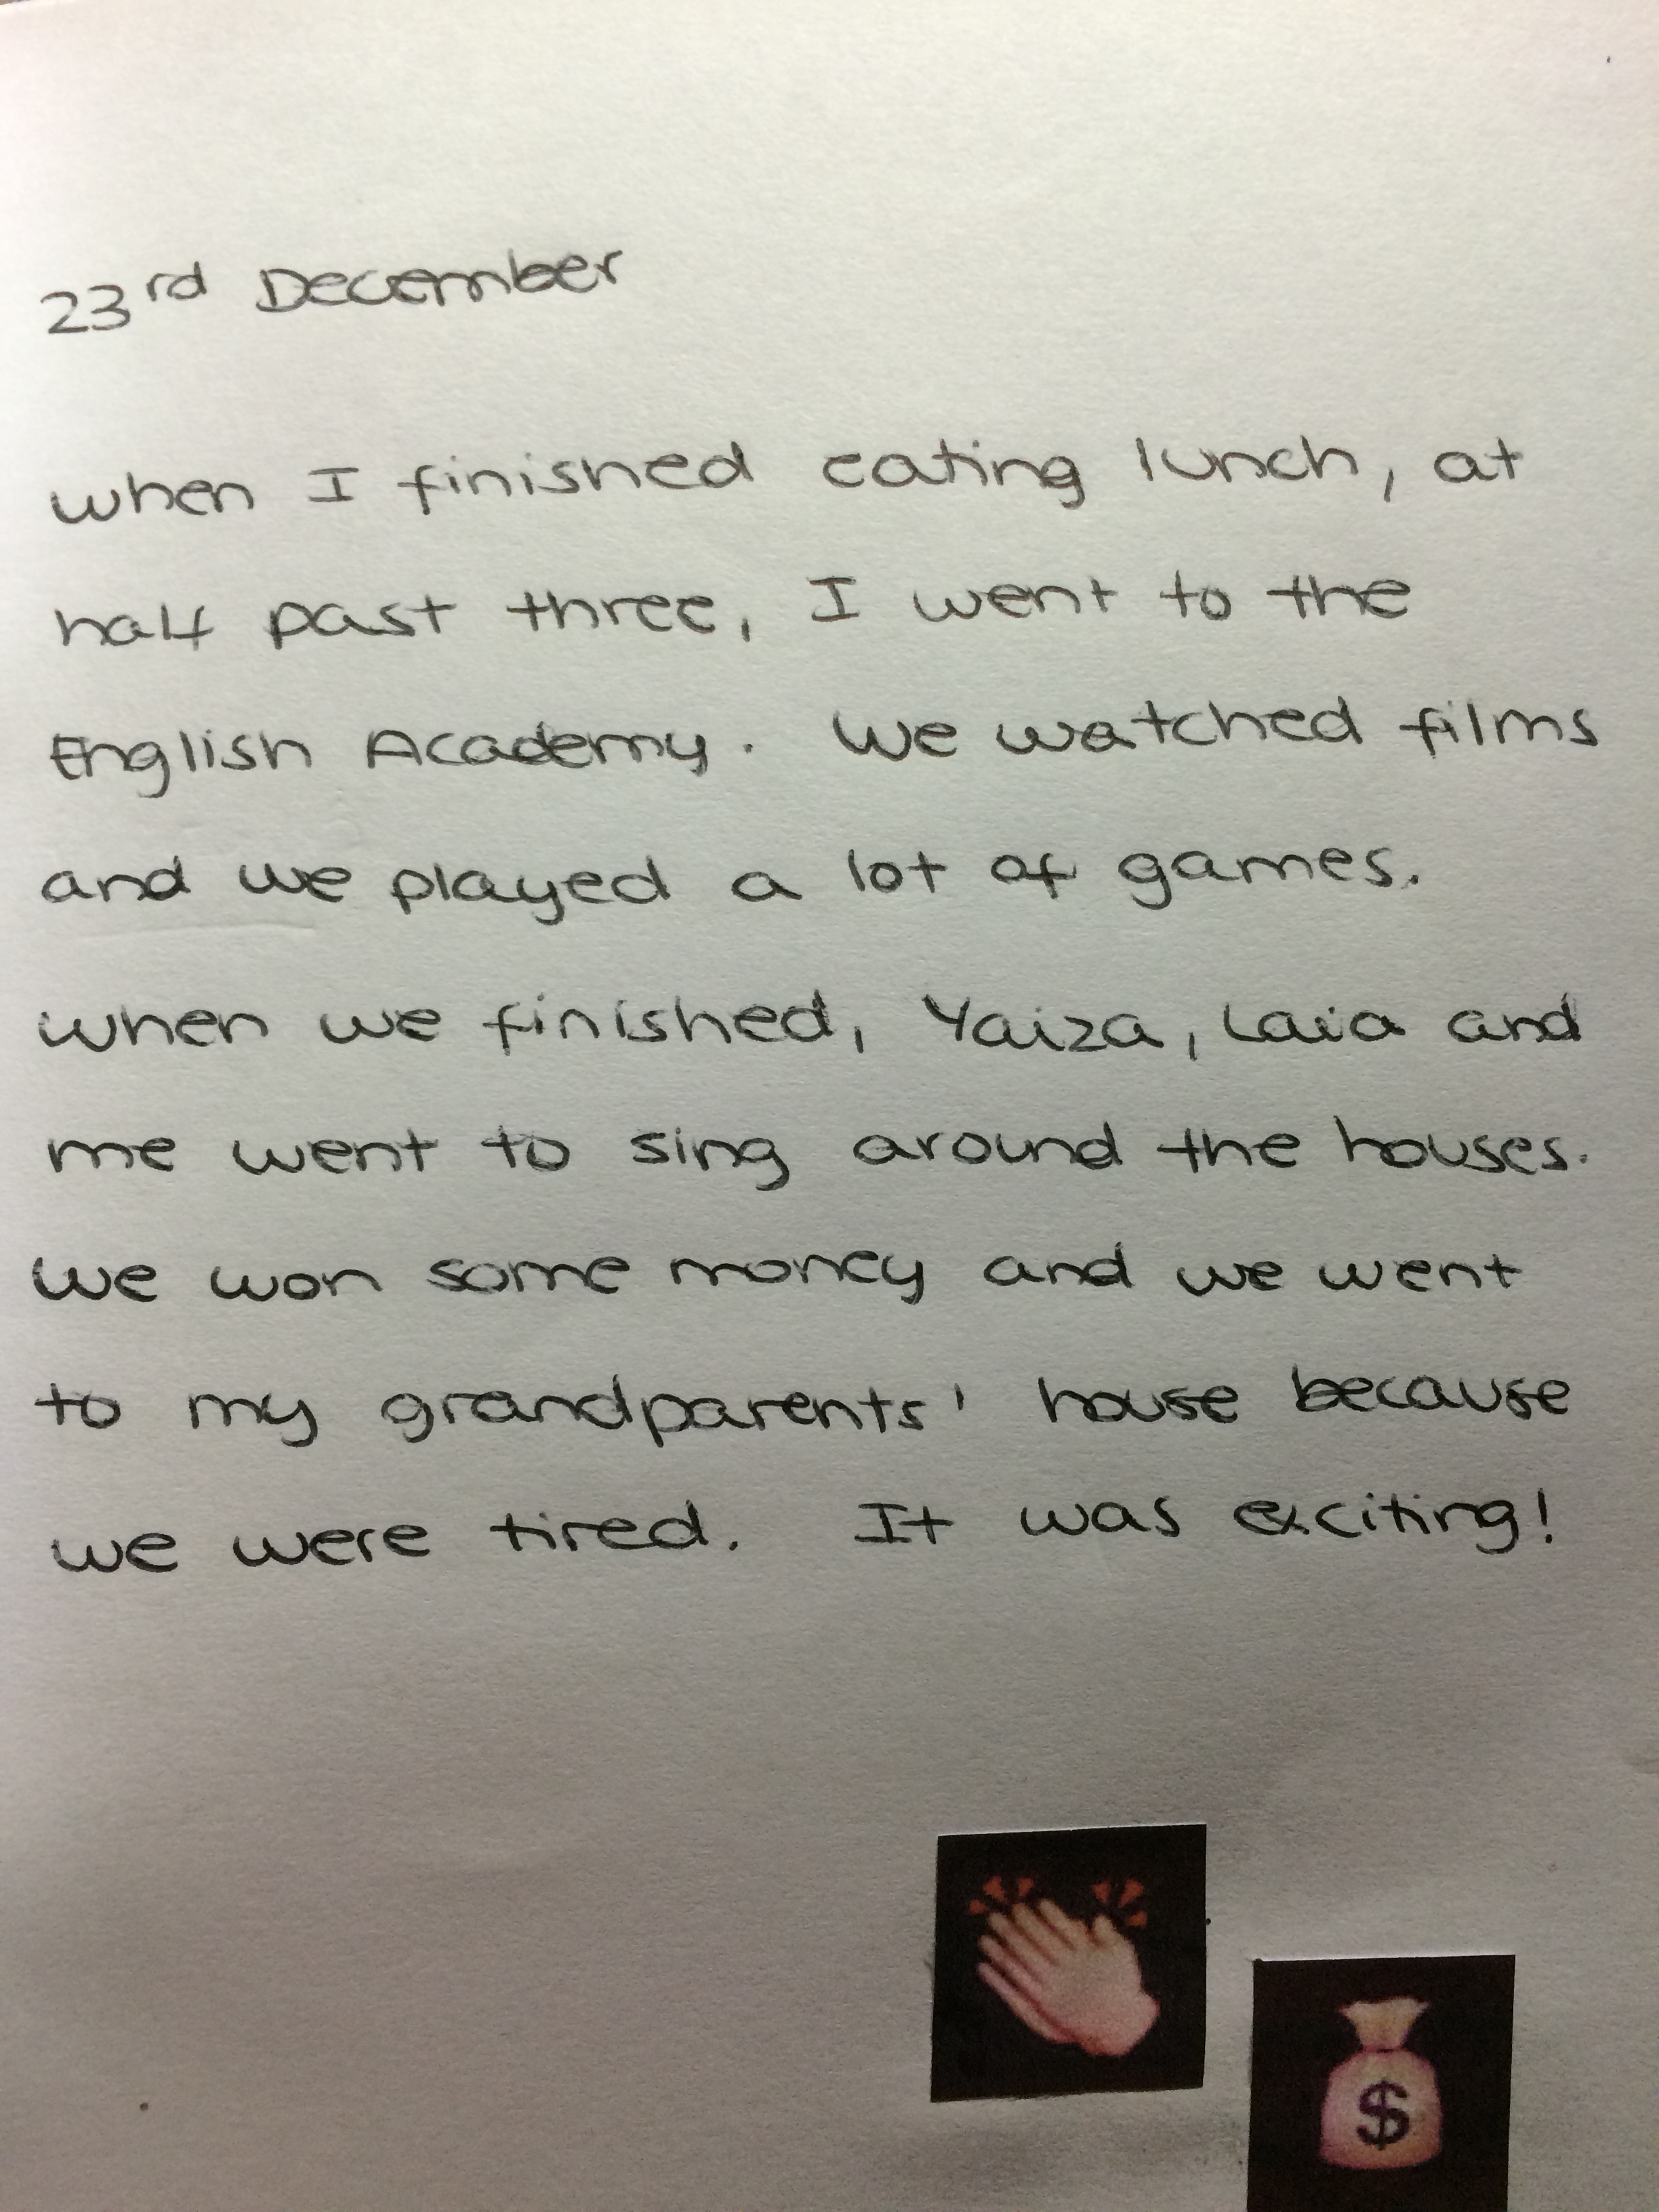 23rd December
when I finished eating lunch, at
half past three, I went to the
English Academy. We watched films
and we played a lot of games.
when we finished, Yaiza, Laia and
me went to sing around the houses.
We won some money and we went
to my grandparents' house because
we were tired. It was exciting!
$